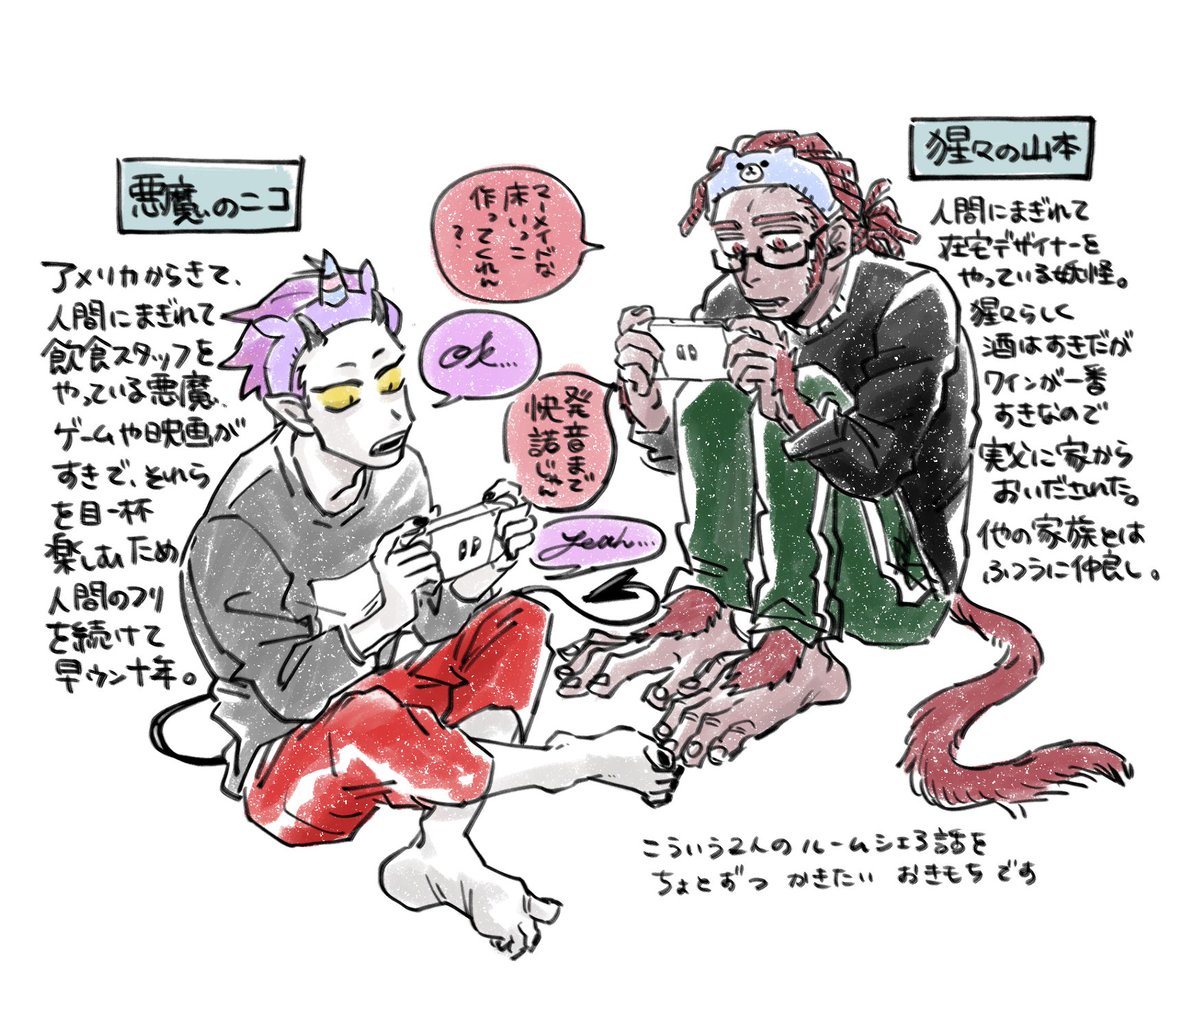 悪魔のニコ
アメリカからきて、
人間にまぎれて
飲食スタッフを
やっている悪魔、
ゲームや映画が
すきで、それら
を目一杯
楽しむため
人間のフリ
を続けて
早ウン十年。
マーメイドな
床いっこ
作ってくれん
?
OK...
発音まで
快諾じゃん
yeah...
猩々の山本
人間にまぎれて
在宅デザイナーを
やっている妖怪。
猩々らしく
酒はすきだが
ワインが一番
すきなので
実父に家から
おいだされた。
他の家族とは
ふつうに仲良し。
こういう2人のルームシェろ話を
ちょとずつ かきたい おきもちです